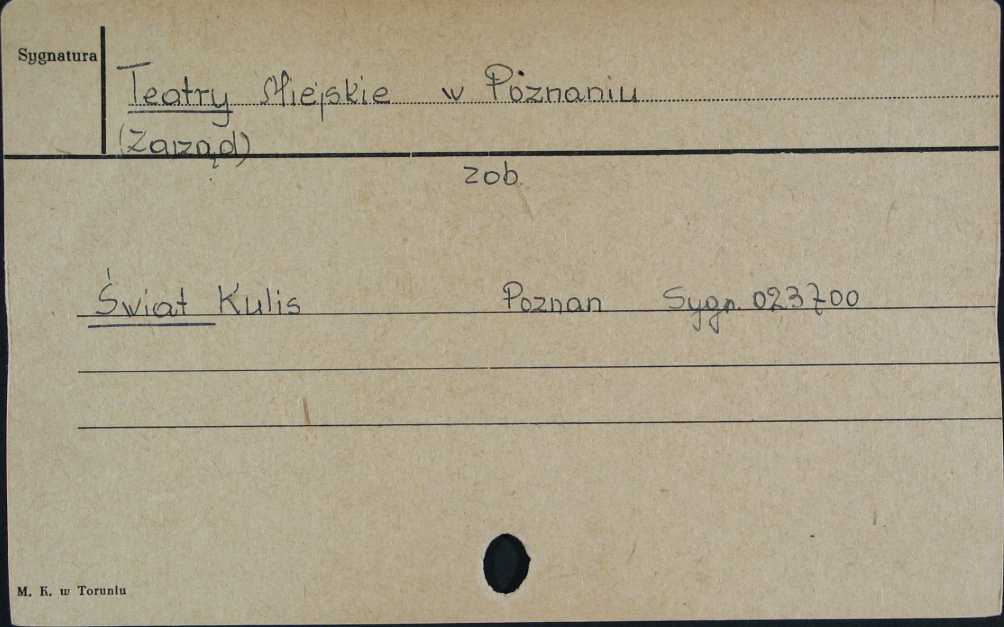 Sygnatura
Teatry Miejskie w Poznaniu
(Zarząd)
zob.
Świat Kulis Poznan Sygn. 023700
M. K. w Toruniu